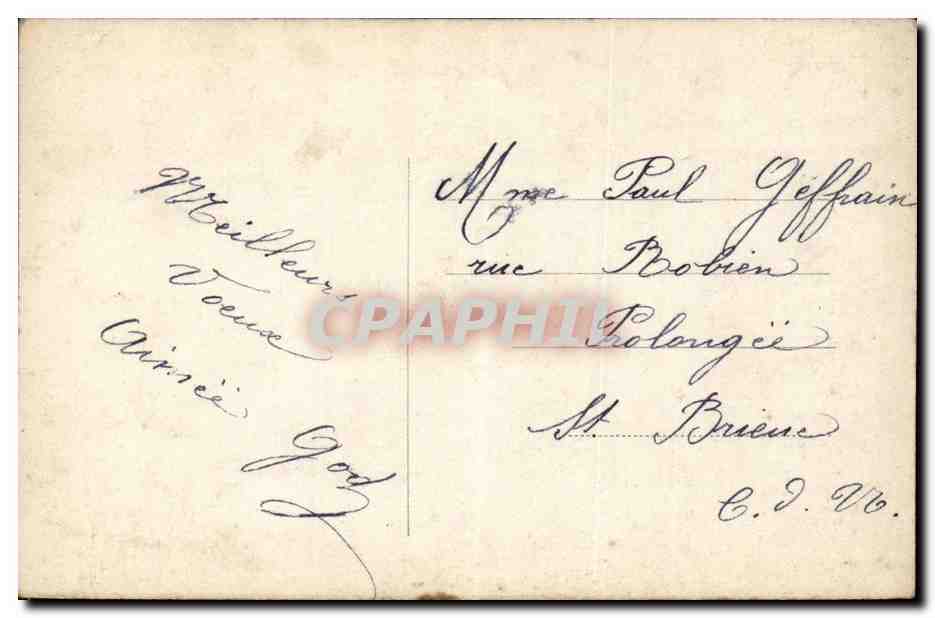 Meilleurs
Voeux
Aimée
God
Mme Paul Geffrain
rue Robien
Prolongée
St. Brieuc
C. d. N.
CPAPHIL